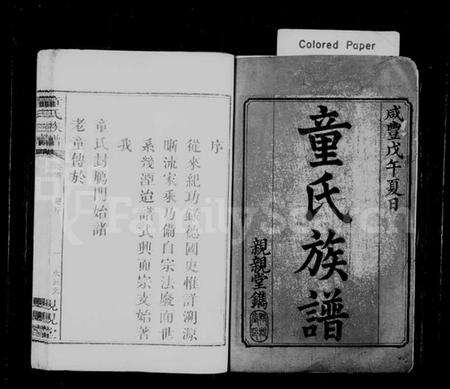 Colored Paper
咸豐戊午夏日
童氏族譜
親親堂鐫
序
從來紀功銘德國史惟詳溯源
晰流家乘乃備自宗法廢而世
系幾湮迨譜式興而宗支始著
我
童氏封鵬門始諸
老童傳於
FamilySearch